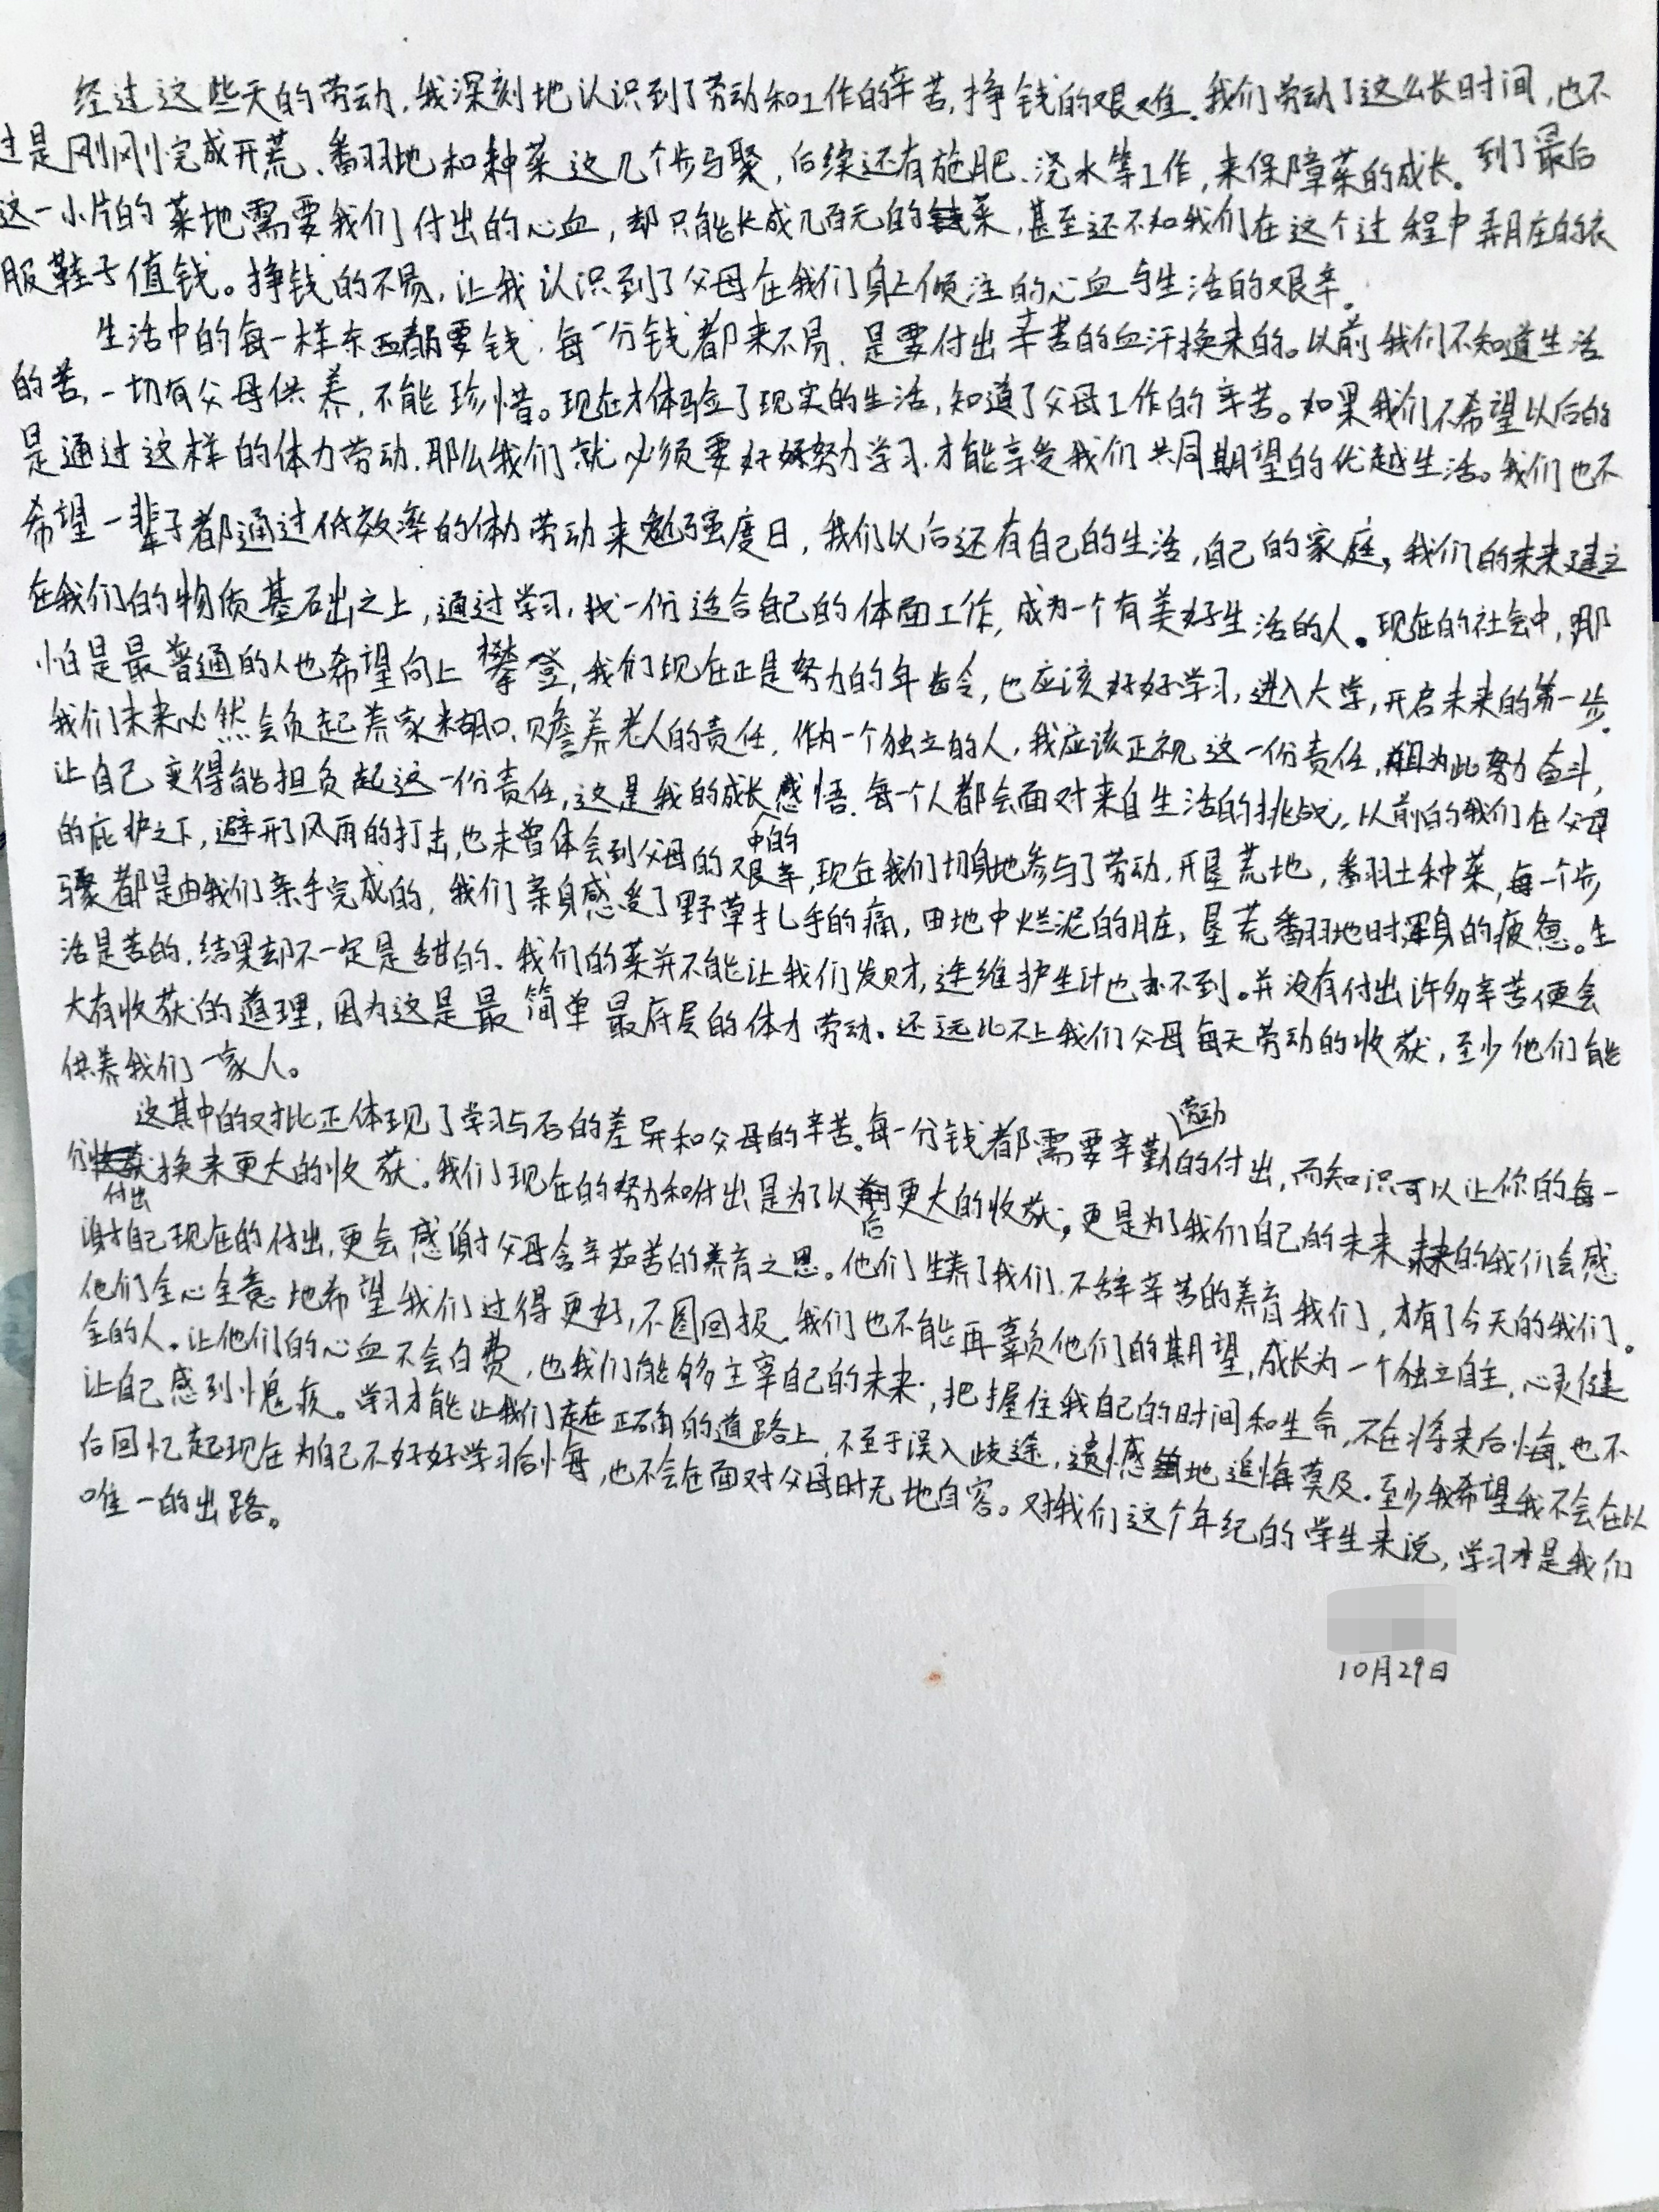 经过这些天的劳动,我深刻地认识到了劳动和工作的辛苦,挣钱的艰难。我们劳动了这么长时间,也不
过是刚刚完成开荒、翻地和种菜这几个步骤,后续还有施肥、浇水等工作,来保障菜的成长。到了最后
这一小片的菜地需要我们付出的心血,却只能长成几百元的菜,甚至还不如我们在这个过程中弄脏的衣
服鞋子值钱。挣钱的不易,让我认识到了父母在我们身上倾注的心血与生活的艰辛。
生活中的每一样东西都要钱,每一分钱都来不易,是要付出辛苦的血汗换来的。以前我们不知道生活
的苦,一切有父母供养,不能珍惜。现在才体验了现实的生活,知道了父母工作的辛苦。如果我们不希望以后的
是通过这样的体力劳动,那么我们就必须要好好努力学习,才能享受我们共同期望的优越生活。我们也不
希望一辈子都通过低效率的体力劳动来勉强度日,我们以后还有自己的生活,自己的家庭,我们的未来建立
在我们的物质基础之上,通过学习,找一份适合自己的体面工作,成为一个有美好生活的人。现在的社会中,那
怕是最普通的人也希望向上攀登,我们现在正是努力的年龄,也应该好好学习,进入大学,开启未来的第一步。
我们未来必然会负起养家糊口、赡养老人的责任,作为一个独立的人,我应该正视这一份责任,为此努力奋斗,
让自己变得能担负起这一份责任,这是我的成长感悟。每一个人都会面对来自生活的挑战,以前的我们在父母
的庇护之下,避开了风雨的打击,也未曾体会到父母的中的艰辛,现在我们切身地参与了劳动,开垦荒地,翻土种菜,每一个步
骤都是由我们亲手完成的,我们亲身感受了野草扎手的痛,田地中烂泥的脏,垦荒翻地时浑身的疲惫。生
活是苦的,结果却不一定是甜的。我们的菜并不能让我们发财,连维护生计也办不到。并没有付出许多辛苦便会
大有收获的道理,因为这是最简单最底层的体力劳动。还远比不上我们父母每天劳动的收获,至少他们能
供养我们一家人。
这其中的对比正体现了学习与否的差异和父母的辛苦。每一分钱都需要辛勤劳动的付出,而知识可以让你的每一
分付出换来更大的收获。我们现在的努力和付出是为了以后更大的收获,更是为了我们自己的未来,未来的我们会感
谢自己现在的付出,更会感谢父母含辛茹苦的养育之恩。他们生养了我们,不辞辛苦的养育我们,才有了今天的我们。
他们全心全意地希望我们过得更好,不图回报,我们也不能再辜负他们的期望,成长为一个独立自主,心灵健
全的人。让他们的心血不会白费,也我们能够主宰自己的未来,把握住我自己的时间和生命,不在将来后悔,也不
让自己感到愧疚。学习才能让我们走在正确的道路上,不至于误入歧途,遗憾地追悔莫及。至少我希望我不会在以
后回忆起现在为自己不好好学习后悔,也不会在面对父母时无地自容。对我们这个年纪的学生来说,学习才是我们
唯一的出路。
10月29日